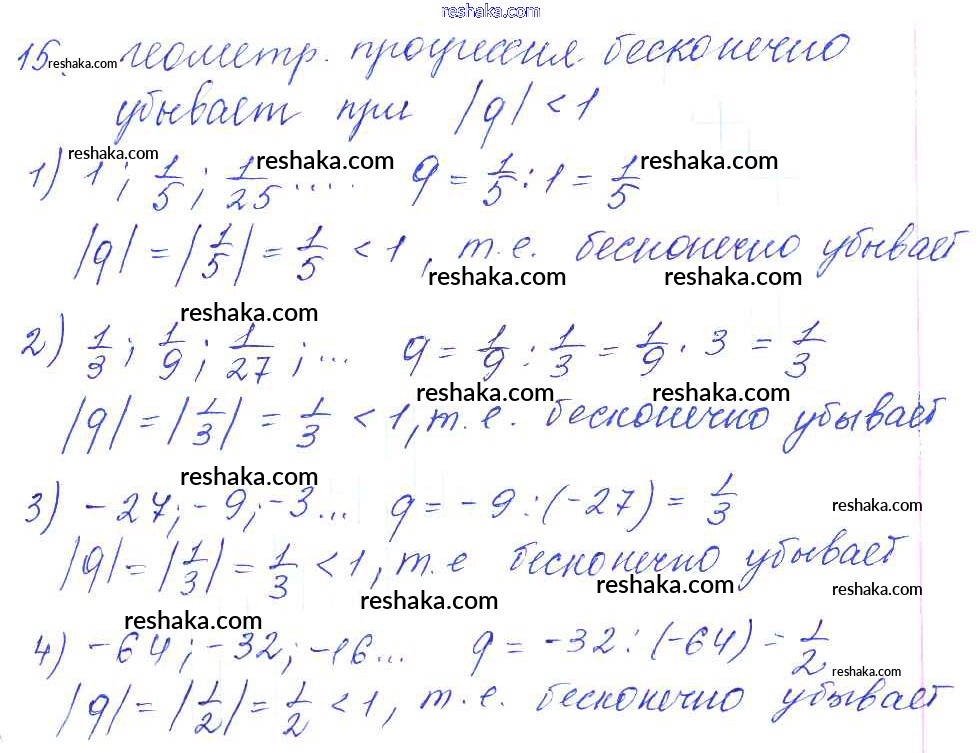 reshaka.com
15. reshaka.com геометр. прогрессия бесконечно
убывает при |q| < 1
reshaka.com reshaka.com reshaka.com
1) 1; 1/5; 1/25 ..... q = 1/5 : 1 = 1/5
|q| = |1/5| = 1/5 < 1, т.е. бесконечно убывает
reshaka.com reshaka.com
reshaka.com
2) 1/3; 1/9; 1/27; ... q = 1/9 : 1/3 = 1/9 · 3 = 1/3
reshaka.com reshaka.com
|q| = |1/3| = 1/3 < 1, т.е. бесконечно убывает
reshaka.com
3) -27; -9; -3... q = -9 : (-27) = 1/3
reshaka.com
|q| = |1/3| = 1/3 < 1, т.е бесконечно убывает
reshaka.com reshaka.com reshaka.com
reshaka.com
4) -64; -32; -16... q = -32 : (-64) = 1/2
reshaka.com
|q| = |1/2| = 1/2 < 1, т.е. бесконечно убывает